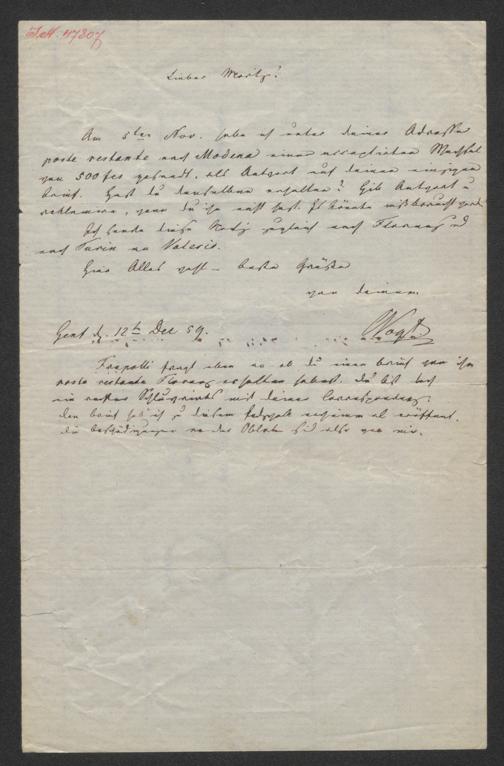 I.N. 47307
Lieber Moritz!
Am 5ten Nov. habe ich unter deiner Adresse
poste restante nach Modena einen Wechsel
von 500 fcs gesandt, als Antwort auf deinen einzigen
Brief. Hast du denselben erhalten? Gib Antwort u
reklamire, wenn du ihn nicht hast. Es könnte
Ich sende diese Notiz zugleich nach Florenz und
nach Turin an Valerio.
Hier Alles wohl – beste Grüße
von deinem
Genf d. 12ten Dec 59. CVogt
Frapolli fragt eben an ob du einen Brief von ihm
poste restante Florenz erhalten habest. Du bist doch
ein mit deiner Correspondenz.
den Brief hab ich zu diesem
die an der Oblate sind also von mir.